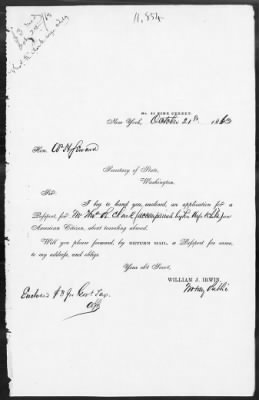 11,854
No. 51 PINE STREET,
New York, October 21st 1863
Hon. Wm H Seward
Secretary of State,
Washington.
Sir:
I beg to hand you, enclosed, an application for a
Passport, for Mr Thos R. Clark (accompanied by his Wife &
American Citizen, about traveling abroad.
Will you please forward, by RETURN MAIL, a Passport for same,
to my address, and oblige
Your obt Servt,
WILLIAM J. IRWIN,
Notary Public
Enclosed $3 for Govt Tax.